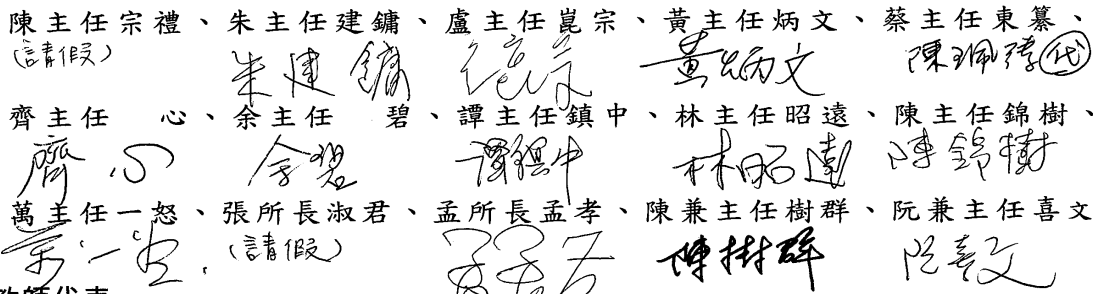 陳主任宗禮、朱主任建鏞、盧主任崑宗、黃主任炳文、蔡主任東纂、
(請假) 朱建鏞 黃炳文 陳珮臻代
齊主任 心、余主任 碧、譚主任鎮中、林主任昭遠、陳主任錦樹、
齊心 余碧 譚鎮中 林昭遠 陳錦樹
萬主任一怒、張所長淑君、孟所長孟孝、陳兼主任樹群、阮兼主任喜文
萬一怒 (請假) 孟孟孝 陳樹群 阮喜文
教師代表